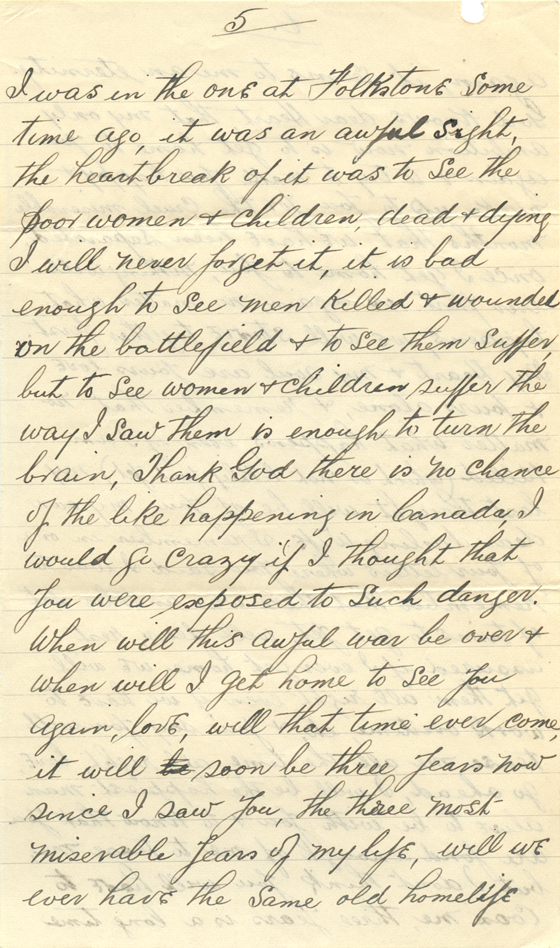 5
I was in the one at Folkstone Some
time ago, it was an awful sight,
the heartbreak of it was to see the
poor women & children, dead & dying
I will never forget it, it is bad
enough to see men Killed & wounded
on the battlefield & to see them suffer,
but to see women & children suffer the
way I saw them is enough to turn the
brain, Thank God there is no chance
of the like happening in Canada, I
would go crazy if I thought that
you were exposed to such danger.
When will this awful war be over &
when will I get home to see you
again, love, will that time ever come,
it will be soon be three years now
since I saw you, the three most
miserable years of my life, will we
ever have the same old homelife